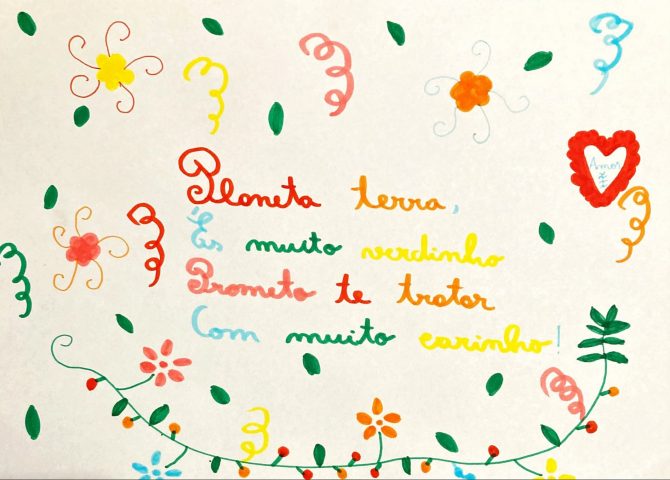 Planeta terra,
És muito verdinho
Prometo te tratar
Com muito carinho!
Amor